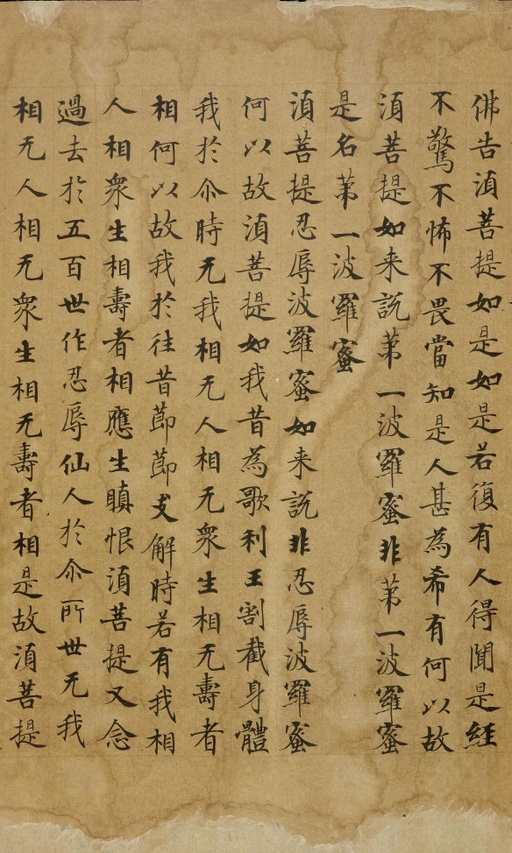 佛告湏菩提如是如是若復有人得聞是經
不驚不怖不畏當知是人甚為希有何以故
湏菩提如来說苐一波羅蜜非苐一波羅蜜
是名苐一波羅蜜
湏菩提忍辱波羅蜜如来說非忍辱波羅蜜
何以故湏菩提如我昔為歌利王割截身體
我於尒時无我相无人相无衆生相无壽者
相何以故我於往昔莭莭支解時若有我相
人相衆生相壽者相應生瞋恨湏菩提又念
過去於五百世作忍辱仙人於尒所世无我
相无人相无衆生相无壽者相是故湏菩提